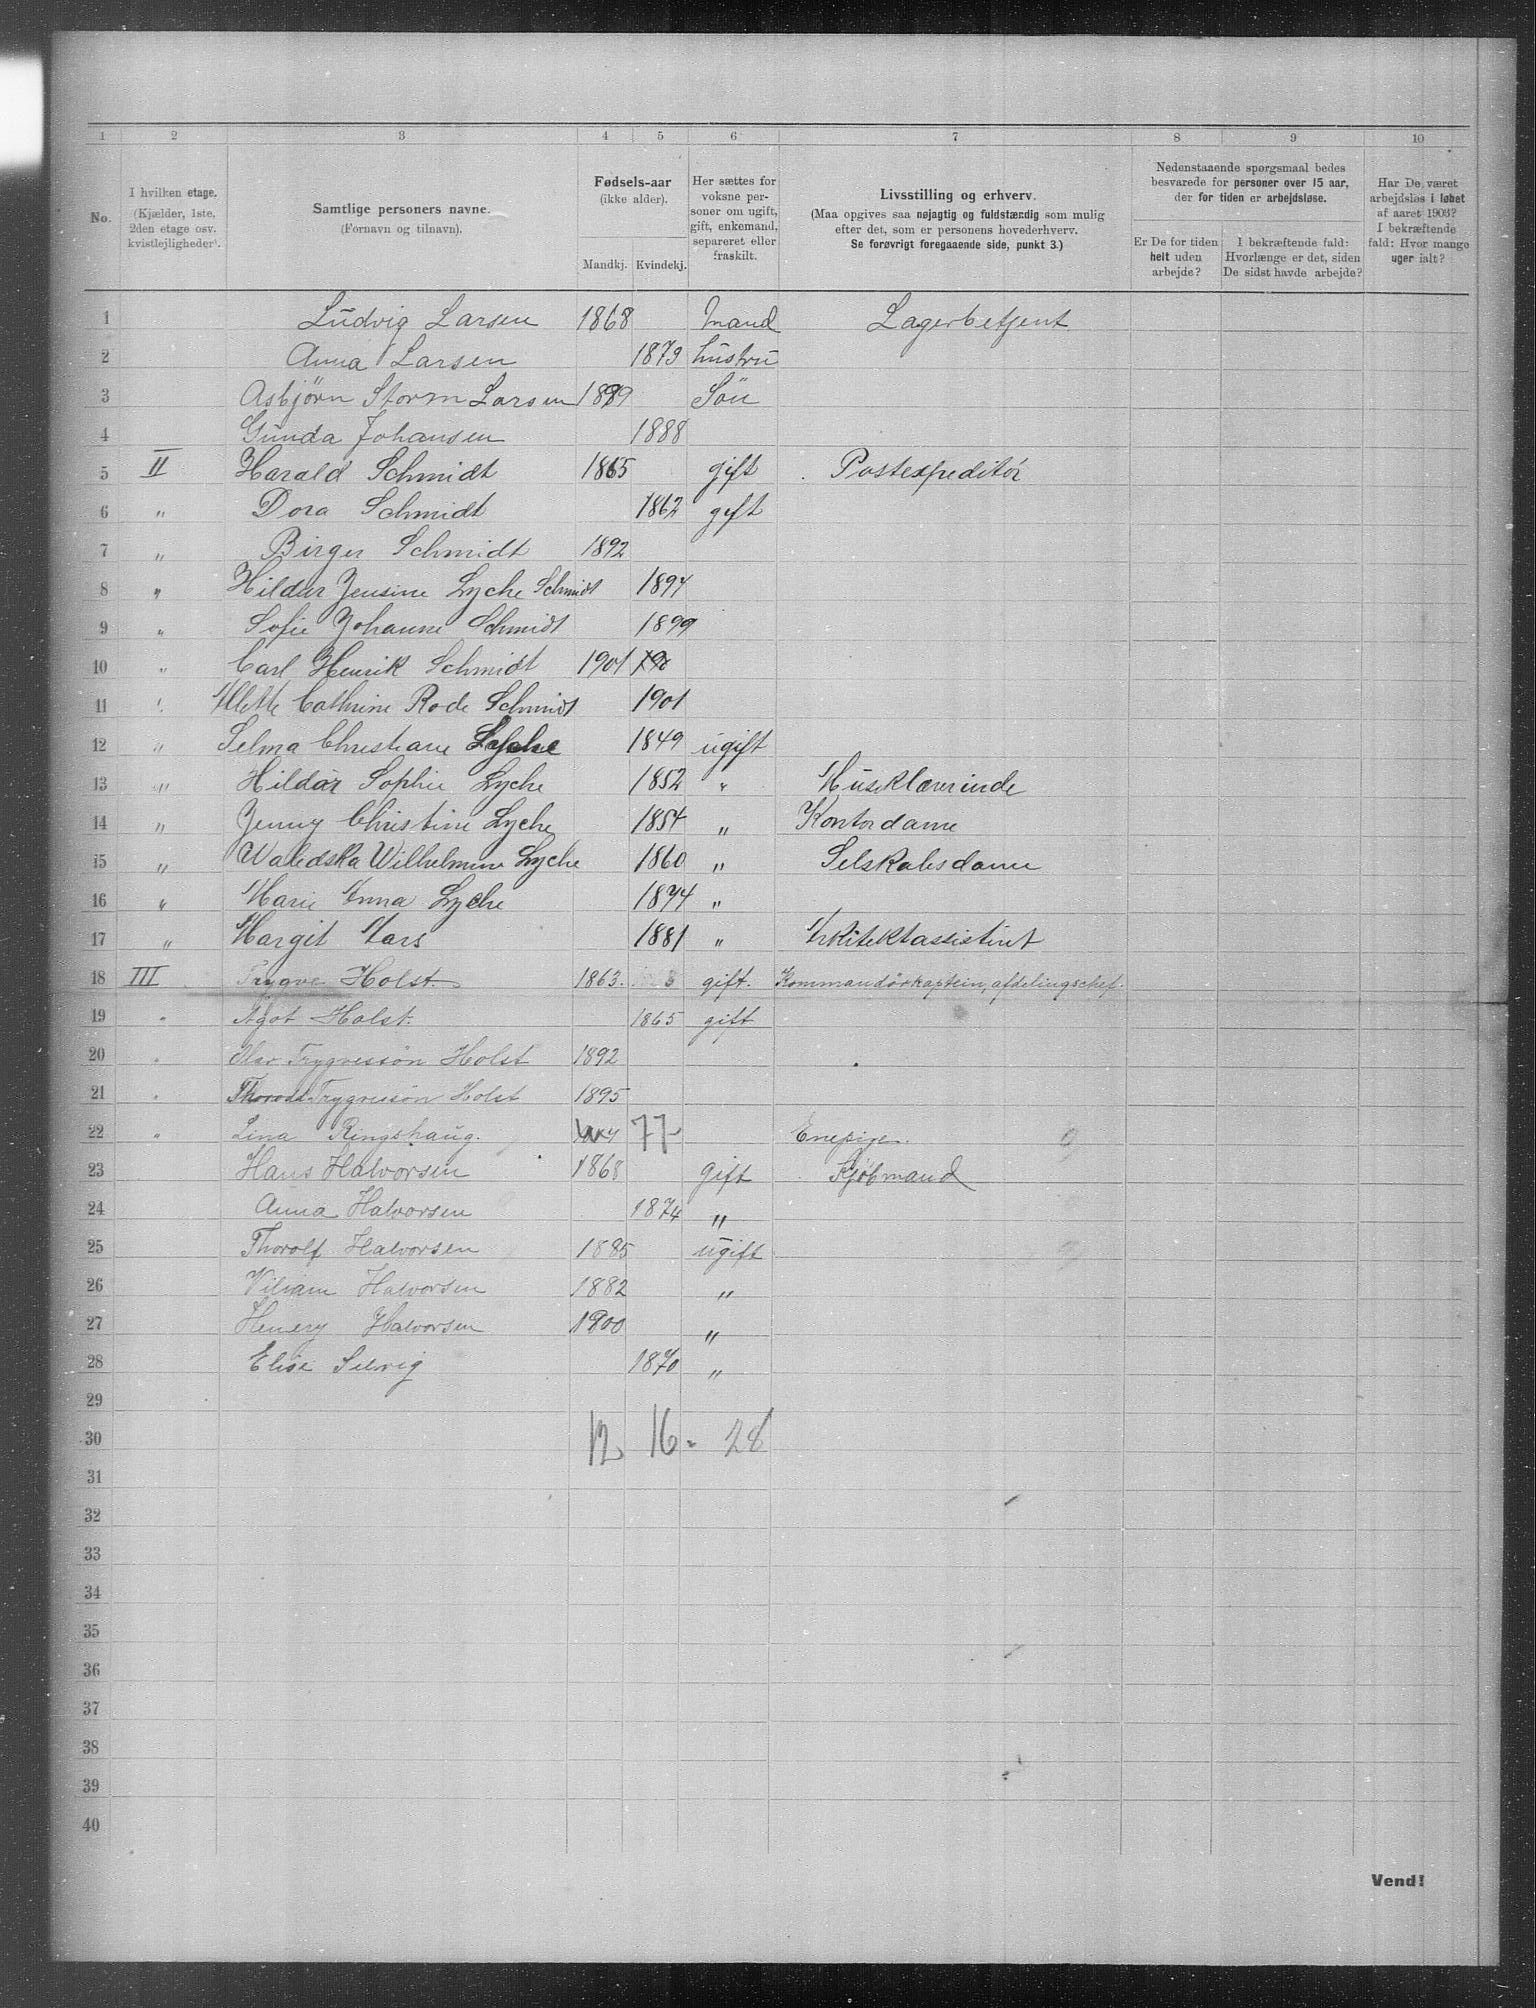 1 2 3 4 5 6 7 8 9 10
No.
I hvilken etage.
(Kjælder, 1ste,
2den etage osv.
kvistlejligheder).
Samtlige personers navne.
(Fornavn og tilnavn).
Fødsels-aar
(ikke alder).
Mandkj. Kvindekj.
Her sættes for
voksne per-
soner om ugift,
gift, enkemand,
separeret eller
fraskilt.
Livsstilling og erhverv.
(Maa opgives saa nøjagtig og fuldstændig som mulig
efter det, som er personens hovederhverv.
Se forøvrigt foregaaende side, punkt 3.)
Nedenstaaende spørgsmaal bedes
besvarede for personer over 15 aar,
der for tiden er arbejdsløse.
Er De for tiden
helt uden
arbejde?
I bekræftende fald:
Hvorlænge er det, siden
De sidst havde arbejde?
Har De været
arbejdsløs i løbet
af aaret 1903?
I bekræftende
fald: Hvor mange
uger ialt?
1 Ludvig Larsen 1868 Mand Lagerbetjent
2 Anna Larsen 1879 hustru
3 Asbjörn Storm Larsen 1899 Sön
4 Gunda Johansen 1888
5 II Harald Schmidt 1865 gift Postexpeditör
6 " Dora Schmidt 1862 gift
7 " Birger Schmidt 1892
8 " Hildur Jensine Lyche Schmidt 1894
9 " Sofie Johanne Schmidt 1899
10 " Carl Henrik Schmidt 1901
11 " Mette Cathrine Rode Schmidt 1901
12 " Selma Christiane Lyche 1849 ugift
13 " Hildur Sophie Lyche 1852 " Musiklærerinde
14 " Jenny Christine Lyche 1854 " Kontordame
15 " Waledska Wilhelmine Lyche 1860 " Selskabsdame
16 " Marie Anna Lyche 1874 "
17 " Margit Aars 1881 " Arkitektassistent
18 III Trygve Holst. 1863. gift. Kommandörkaptein, afdelingschef.
19 " Agot Holst. 1865 gift
20 " Olav Trygvessön Holst 1892
21 " Thorodd Trygvessön Holst 1895
22 " Lina Ringshaug. 77 Enepige.
23 Hans Halvorsen 1868 gift Kjöbmand
24 Anna Halvorsen 1874 "
25 Thorolf Halvorsen 1885 ugift
26 Viliam Halvorsen 1882 "
27 Henery Halvorsen 1900 "
28 Elise Selvig 1870 "
29
30 12 16 - 28
31
32
33
34
35
36
37
38
39
40
Vend!